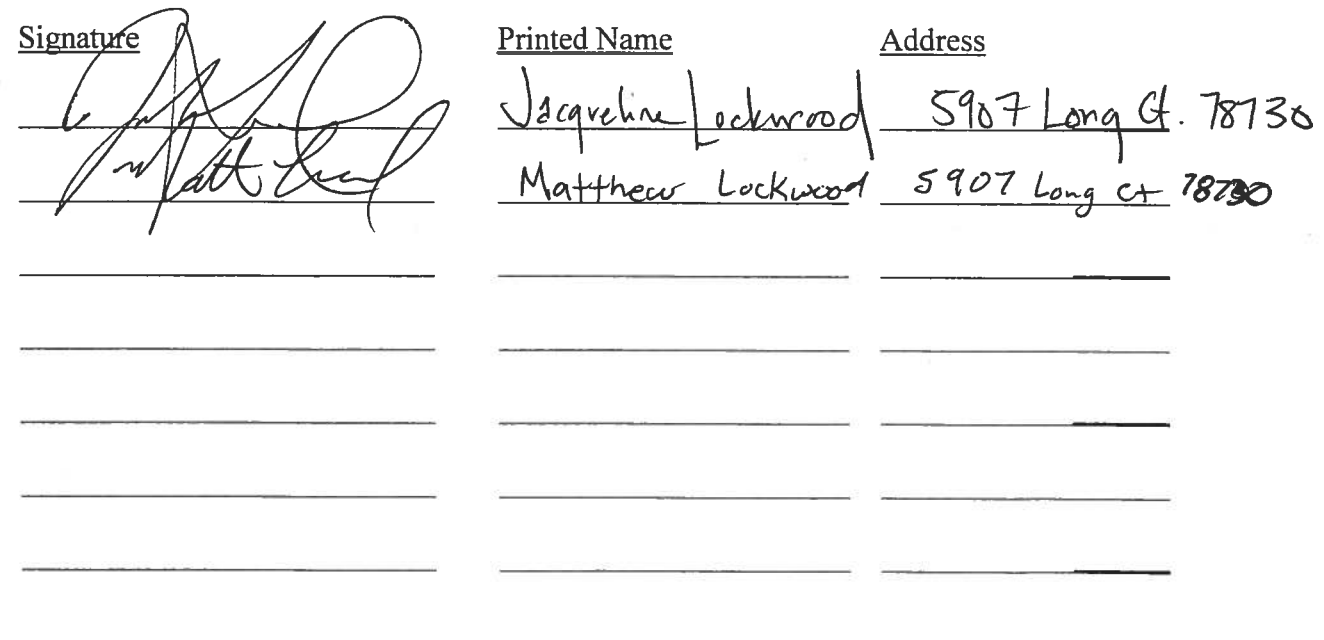 Signature Printed Name Address
Jacqueline Lockwood 5907 Long Ct. 78730
Matt Matthew Lockwood 5907 Long Ct 78730